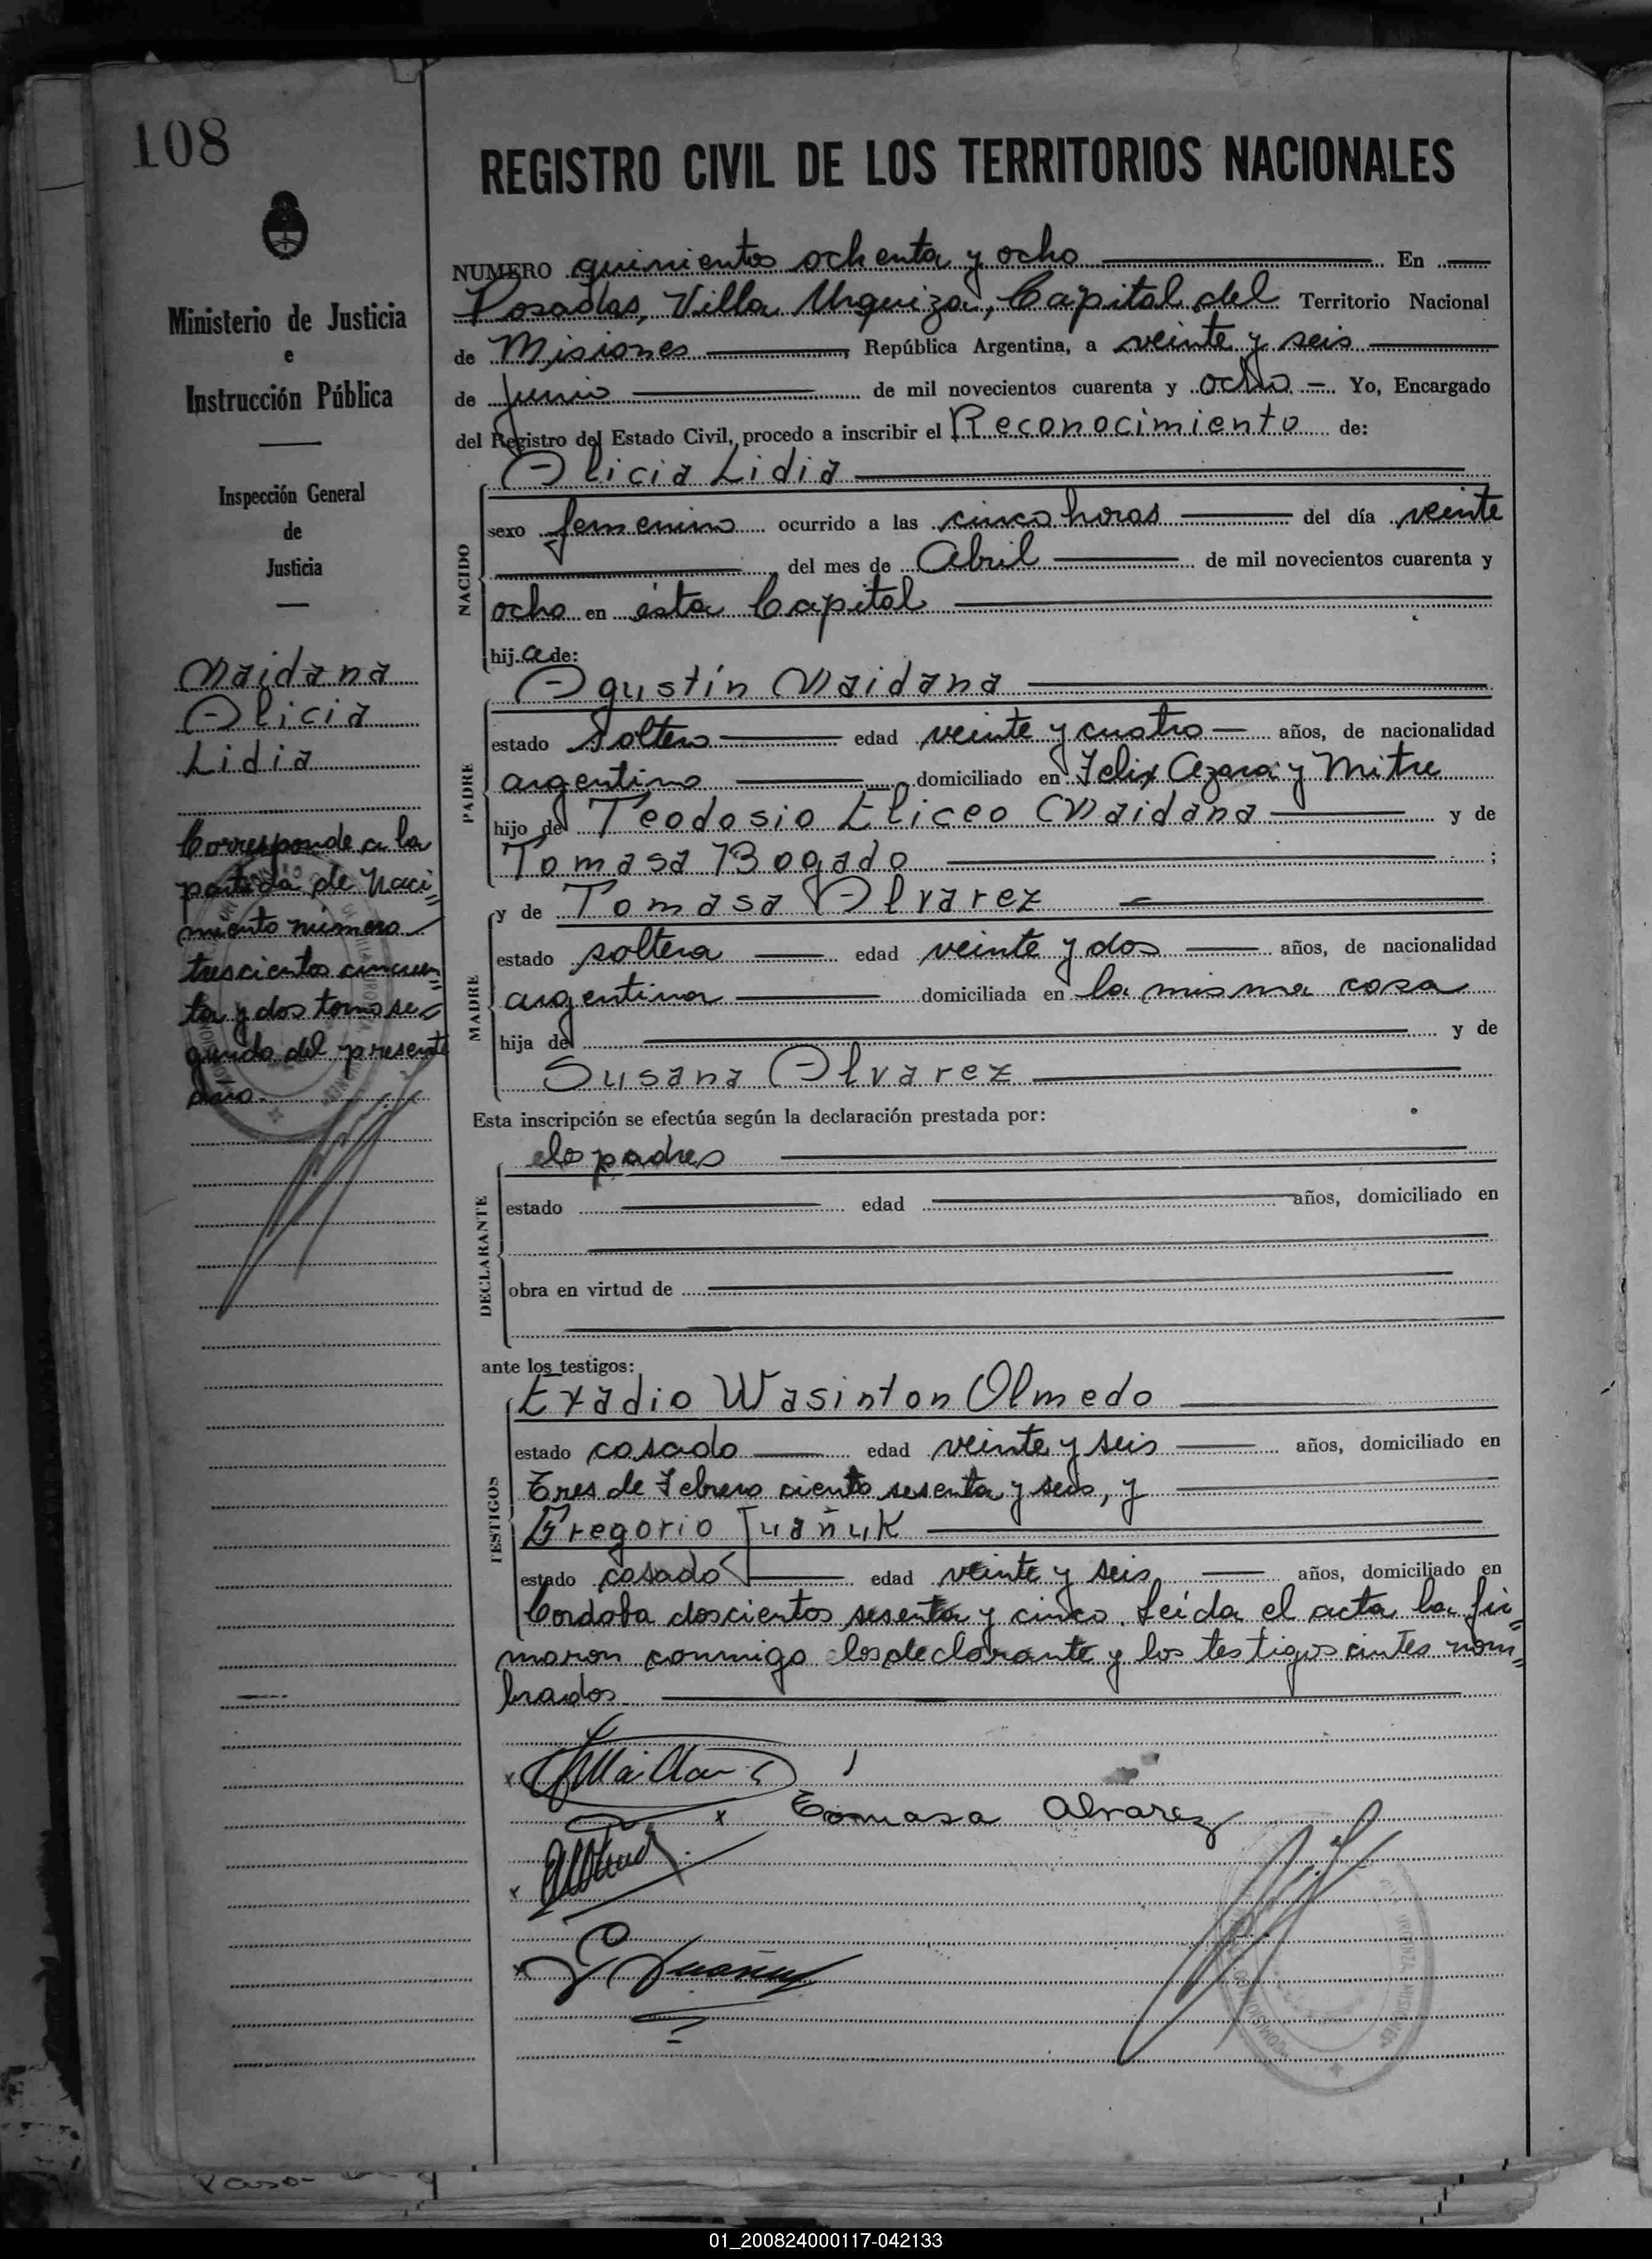 108
REGISTRO CIVIL DE LOS TERRITORIOS NACIONALES
Ministerio de Justicia
e
Instrucción Pública
Inspección General
de
Justicia
Maidana
Alicia
Lidia
Corresponde a la
partida de Naci=
miento número
trescientos cincuen=
ta y dos tomo se=
gundo del presente
año.
NUMERO quinientos ochenta y ocho En
Posadas, Villa Urquiza, Capital del Territorio Nacional
de Misiones, República Argentina, a veinte y seis
de Junio de mil novecientos cuarenta y ocho — Yo, Encargado
del Registro del Estado Civil, procedo a inscribir el Reconocimiento de:
Alicia Lidia
NACIDO
sexo femenino ocurrido a las cinco horas del día veinte
del mes de Abril de mil novecientos cuarenta y
ocho en ésta Capital
hija de:
Agustín Maidana
PADRE
estado soltero edad veinte y cuatro — años, de nacionalidad
argentino domiciliado en Felix Azara y Mitre
hijo de Teodosio Eliceo Maidana y de
Tomasa Bogado ;
y de Tomasa Alvarez
MADRE
estado soltera edad veinte y dos años, de nacionalidad
argentina domiciliada en la misma casa
hija de y de
Susana Alvarez
Esta inscripción se efectúa según la declaración prestada por:
los padres
DECLARANTE
estado edad años, domiciliado en
obra en virtud de
ante los testigos:
TESTIGOS
Exadio Wasinton Olmedo
estado casado edad veinte y seis años, domiciliado en
Tres de Febrero ciento sesenta y seis, y
Gregorio Juañuk
estado casado edad veinte y seis años, domiciliado en
Cordoba doscientos sesenta y cinco. Leída el acta la fir=
maron conmigo los declarante y los testigos antes nom=
brados.
Tomasa Alvarez
01_200824000117-042133